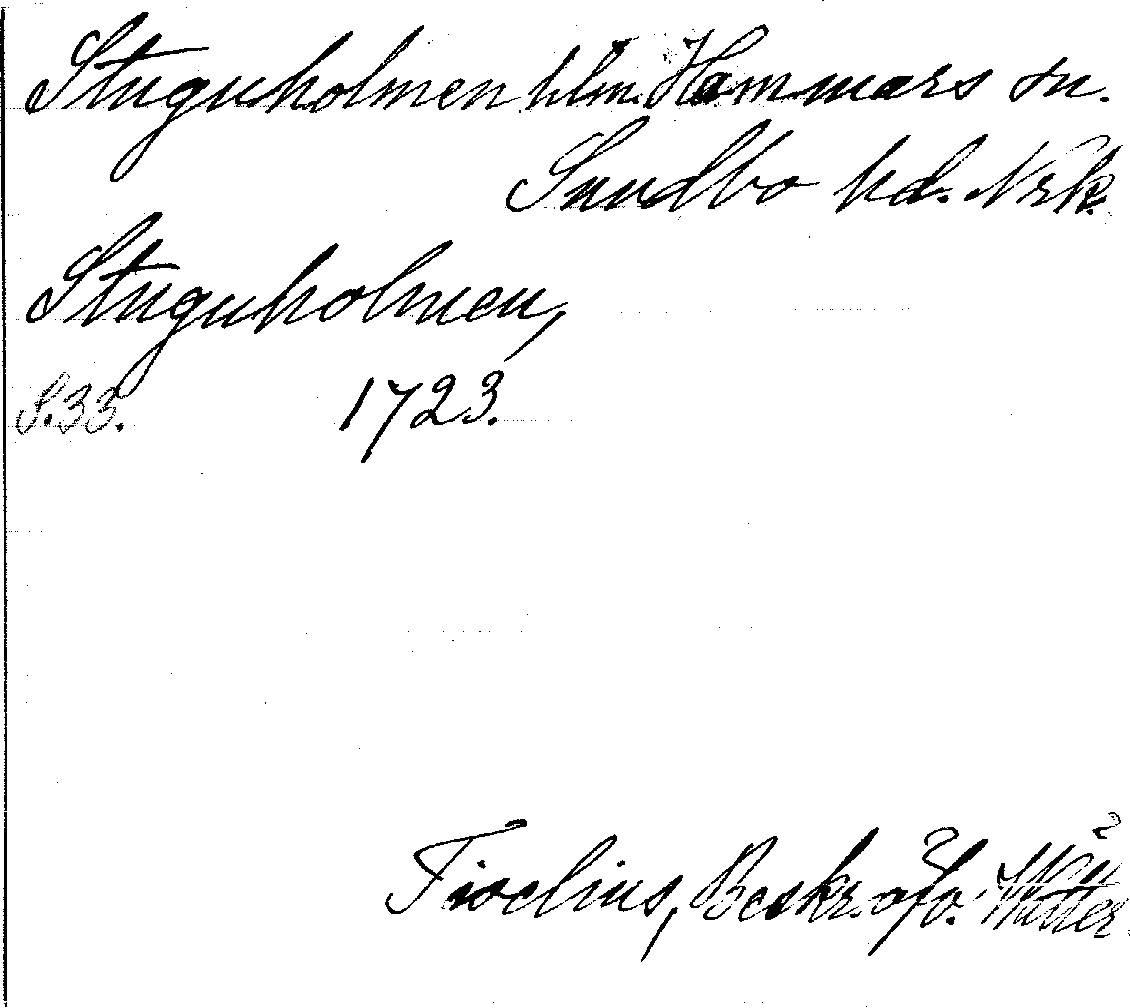 Stuguholmen hlm. Hammars sn.
Sundbo hd. Nrk.
Stuguholmen,
S. 33. 1723.
Tiselius, Beskr. öfv. Wätter